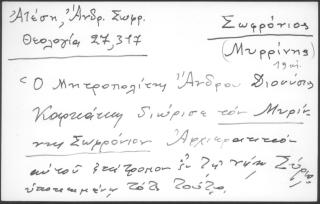 Ἀτέση, Ἀνδρ. Σωφρ.
Θεολογία 27,317
Σωφρόνιος
(Μυρρίνης)
19 αἰ.
Ὁ Μητροπολίτης Ἄνδρου Διονύσιος
Καφκάτης διώρισε τὸν Μυρίν-
νης Σωφρόνιον Ἀρχιερατικὸν
αὐτοῦ ἐπίτροπον ἐν τῇ νήσῳ Σύρῳ
ὑποκειμένῃ τότε